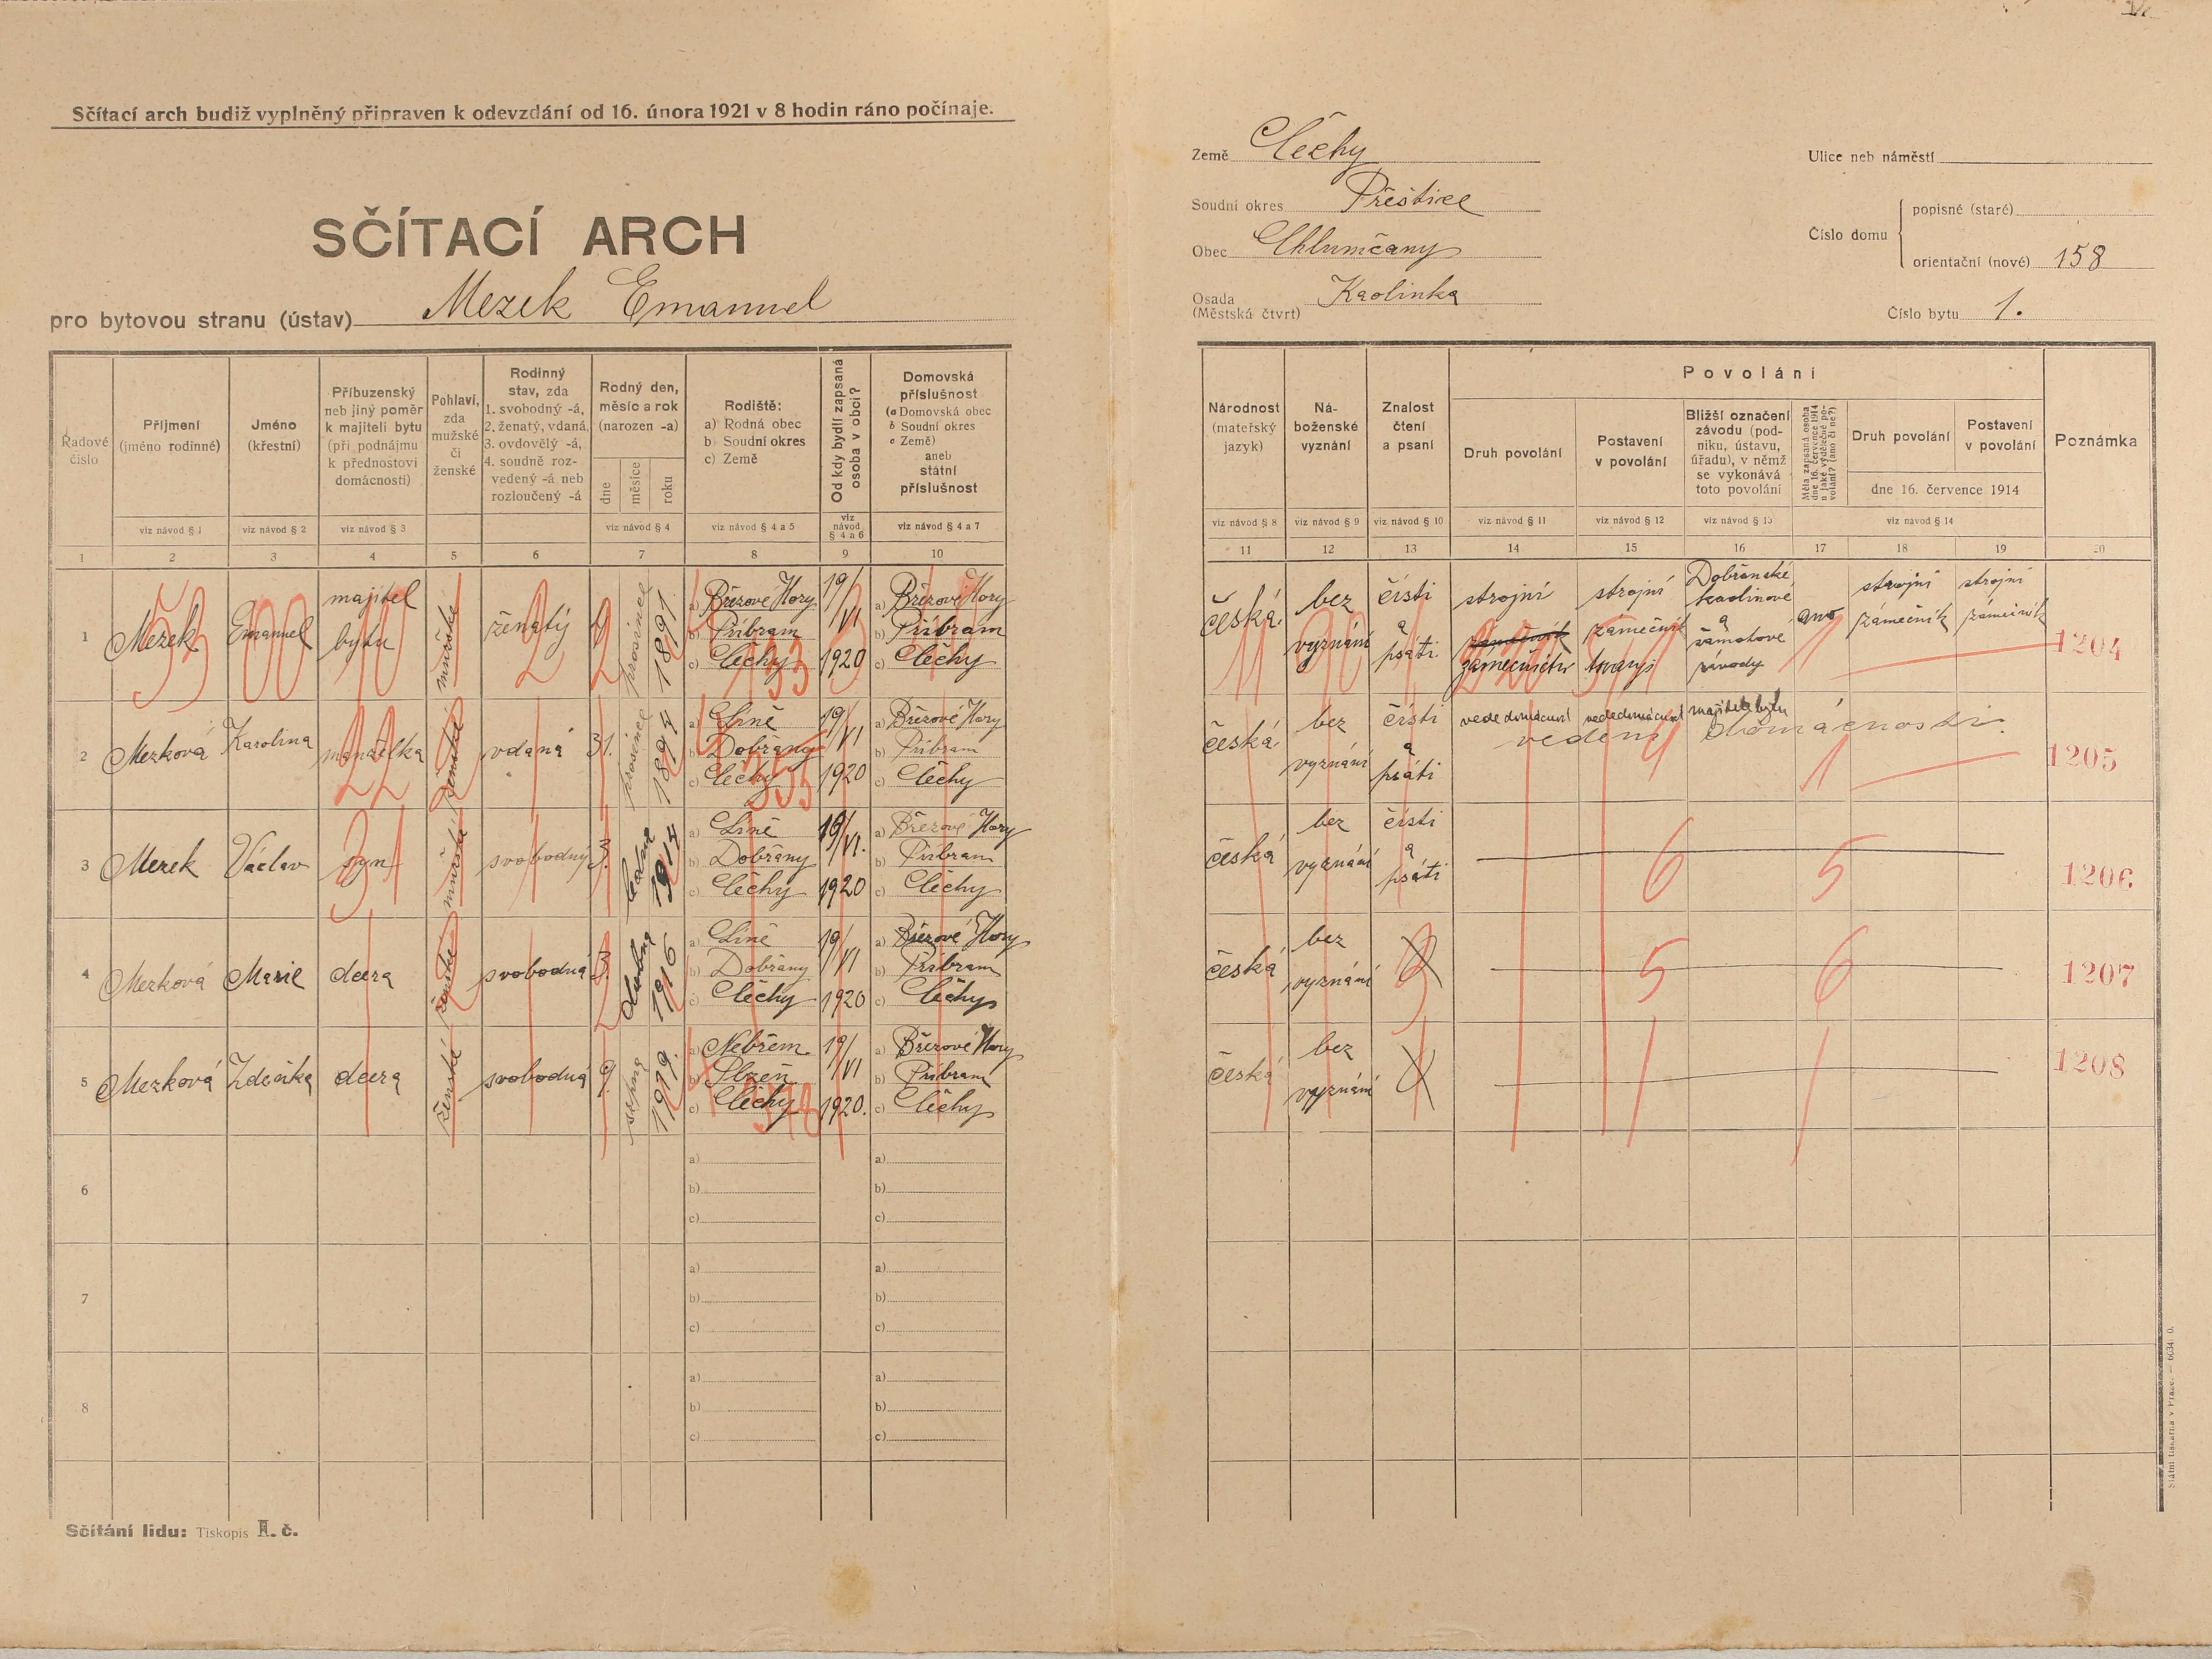 Sčítací arch budiž vyplněný připraven k odevzdání od 16. února 1921 v 8 hodin ráno počínaje.
SČÍTACÍ ARCH
pro bytovou stranu (ústav) Mezek Emanuel
Země Čechy
Soudní okres Přeštice
Obec Chlumčany
Osada (Městská čtvrt) Kaolinka
Ulice neb náměstí
Číslo domu
popisné (staré)
orientační (nové) 158
Číslo bytu 1.
Řadové číslo
Příjmení (jméno rodinné)
Jméno (křestní)
Příbuzenský neb jiný poměr k majiteli bytu (při podnájmu k přednostovi domácnosti)
Pohlaví, zda mužské či ženské
Rodinný stav, zda 1. svobodný -á, 2. ženatý, vdaná, 3. ovdovělý -á, 4. soudně rozvedený -á neb rozloučený -á
Rodný den, měsíc a rok (narozen -a)
dne měsíce roku
Rodiště: a) Rodná obec b) Soudní okres c) Země
Od kdy bydlí zapsaná osoba v obci?
Domovská příslušnost (a Domovská obec b Soudní okres c Země) aneb státní příslušnost
viz návod § 1 viz návod § 2 viz návod § 3 viz návod § 4 viz návod § 4 a 5 viz návod § 4 a 6 viz návod § 4 a 7
1 2 3 4 5 6 7 8 9 10
Národnost (mateřský jazyk)
Náboženské vyznání
Znalost čtení a psaní
Povolání
Druh povolání
Postavení v povolání
Bližší označení závodu (podniku, ústavu, úřadu), v němž se vykonává toto povolání
Měla zapsaná osoba dne 16. července 1914 n jaké výdělečné povolání? (ano či ne?)
Druh povolání
Postavení v povolání
dne 16. července 1914
Poznámka
viz návod § 8 viz návod § 9 viz návod § 10 viz návod § 11 viz návod § 12 viz návod § 13 viz návod § 14
11 12 13 14 15 16 17 18 19 20
1 Mezek Emanuel majitel bytu mužské ženatý prosince 1891 a) Březové Hory b) Příbram c) Čechy 19/VI 1920 a) Březové Hory b) Příbram c) Čechy
česká bez vyznání čísti a psáti strojní zámečník zámečnictv strojní zámečník tovary Dobřanské kaolinové a šamotové závody ano strojní zámečník strojní zámečník 1204
2 Mezková Karolina manželka ženské vdaná 31. prosince 1894 a) Líně b) Dobřany c) Čechy 19/VI 1920 a) Březové Hory b) Příbram c) Čechy
česká bez vyznání čísti a psáti vede domácnost vede domácnost majitele bytu vedení domácnosti. 1205
3 Mezek Václav syn mužské svobodný 3. ledna 1914 a) Líně b) Dobřany c) Čechy 19/VI. 1920 a) Březové Hory b) Příbram c) Čechy
česká bez vyznání čísti a psáti 6 5 1206
4 Mezková Marie dcera ženské svobodná 3. dubna 1916 a) Líně b) Dobřany c) Čechy 19/VI 1920 a) Březové Hory b) Příbram c) Čechy
česká bez vyznání 5 6 1207
5 Mezková Zdeňka dcera ženské svobodná 9. srpna 1919. a) Nebřem. b) Plzeň c) Čechy 19/VI 1920. a) Březové Hory b) Příbram c) Čechy
česká bez vyznání 1208
6 a) b) c) a) b) c)
7 a) b) c) a) b) c)
8 a) b) c) a) b) c)
Sčítání lidu: Tiskopis II. č.
Státní tiskárna v Praze. — 6034-0.